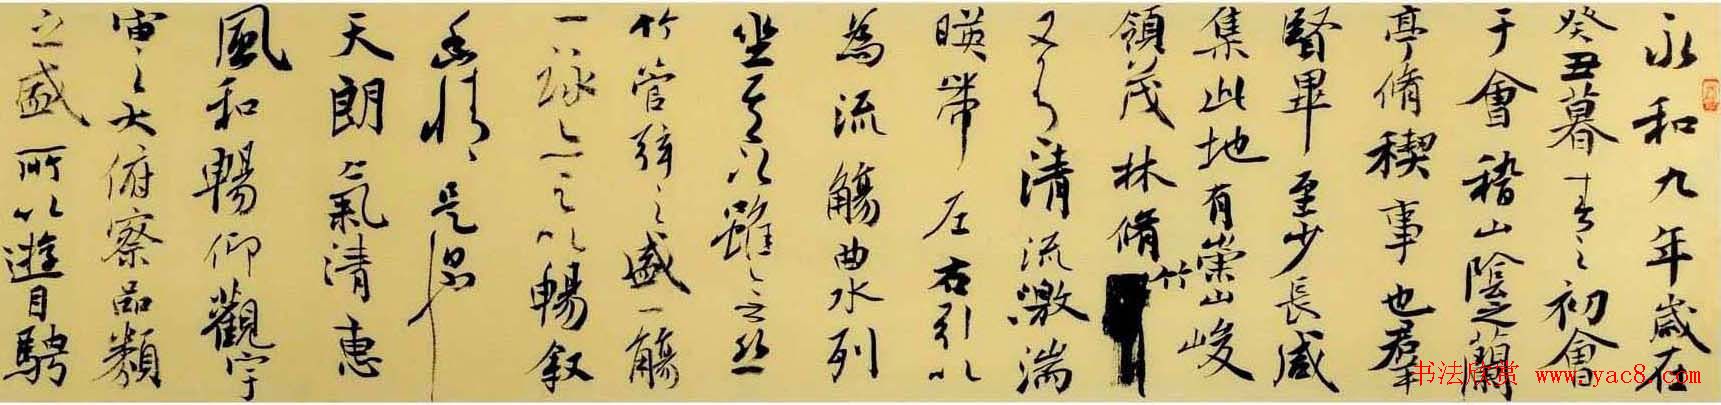 永和九年歲在
癸丑暮春之初會
于會稽山陰之蘭
亭脩稧事也羣
賢畢至少長咸
集此地有崇山峻
領茂林脩竹
又有清流激湍
暎帶左右引以
為流觴曲水列
坐其次雖無絲
竹管弦之盛一觴
一詠亦足以暢叙
幽情是日也
天朗氣清惠
風和暢仰觀宇
宙之大俯察品類
之盛所以遊目騁
书法欣赏 www.yac8.com